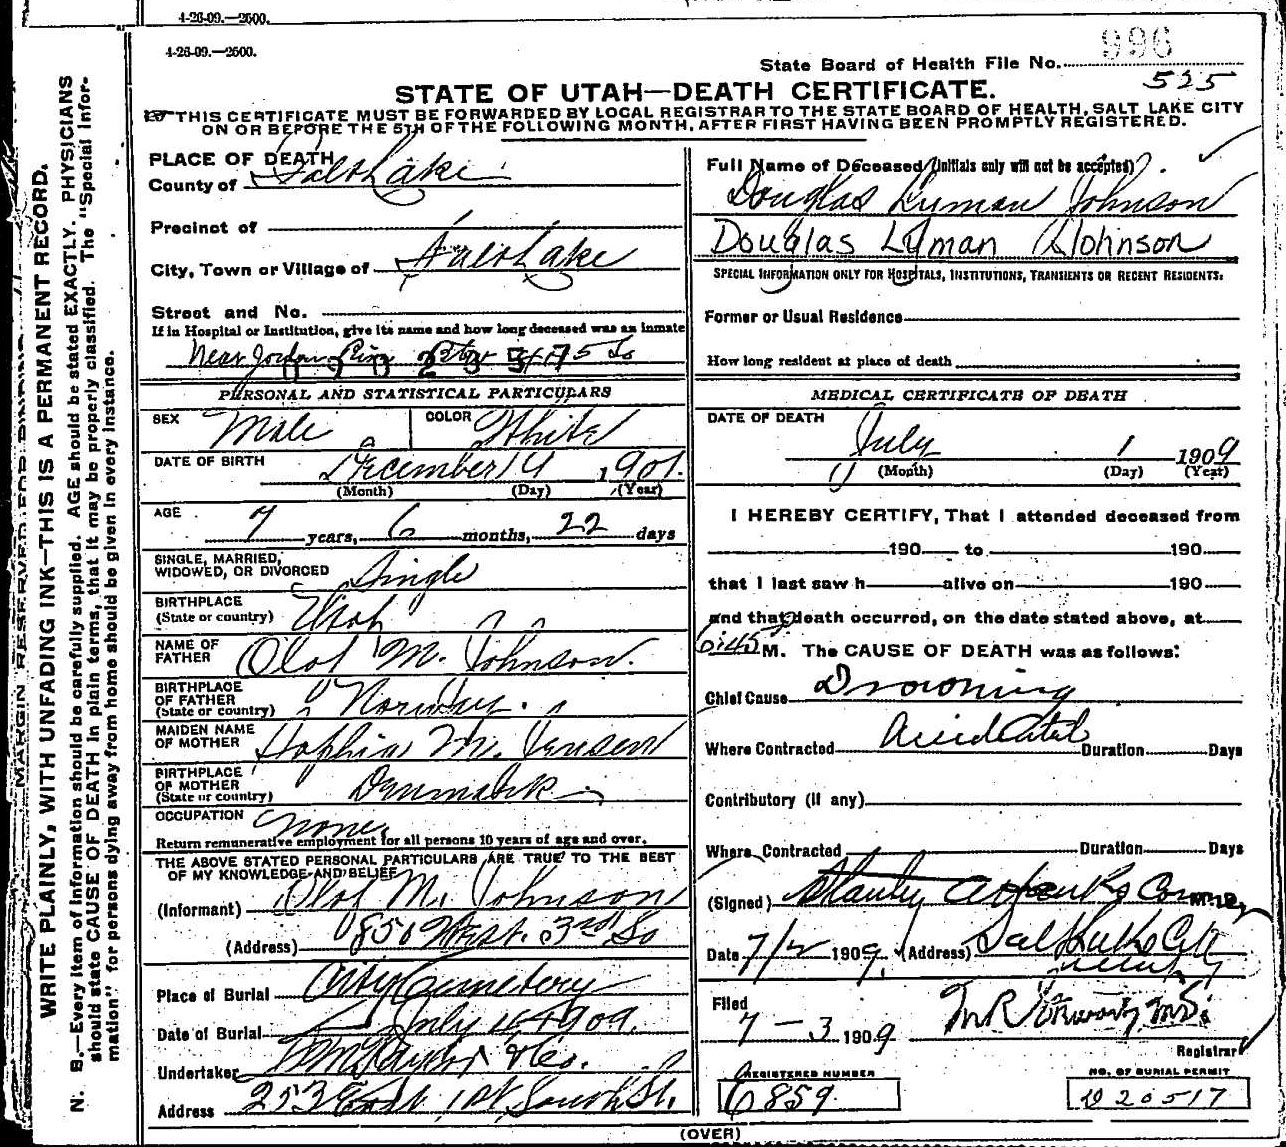 4-26-09.—2500.
4-26-09.—2500.
996
State Board of Health File No.
525
STATE OF UTAH—DEATH CERTIFICATE.
THIS CERTIFICATE MUST BE FORWARDED BY LOCAL REGISTRAR TO THE STATE BOARD OF HEALTH, SALT LAKE CITY
ON OR BEFORE THE 5TH OF THE FOLLOWING MONTH, AFTER FIRST HAVING BEEN PROMPTLY REGISTERED.
MARGIN RESERVED FOR BINDING
WRITE PLAINLY, WITH UNFADING INK—THIS IS A PERMANENT RECORD.
N. B.—Every item of information should be carefully supplied. AGE should be stated EXACTLY. PHYSICIANS
should state CAUSE OF DEATH in plain terms, that it may be properly classified. The "Special Infor-
mation" for persons dying away from home should be given in every instance.
PLACE OF DEATH
County of Salt Lake
Precinct of
City, Town or Village of Salt Lake
Street and No.
If in Hospital or Institution, give its name and how long deceased was an inmate
Near Jordan So
PERSONAL AND STATISTICAL PARTICULARS
SEX Male COLOR White
DATE OF BIRTH December 9 1901.
(Month) (Day) (Year)
AGE 7 years, 6 months, 22 days
SINGLE, MARRIED,
WIDOWED, OR DIVORCED Single
BIRTHPLACE
(State or country) Utah
NAME OF
FATHER Olof M. Johnson.
BIRTHPLACE
OF FATHER
(State or country) Norway.
MAIDEN NAME
OF MOTHER Sophia M. Jensen
BIRTHPLACE
OF MOTHER
(State or country) Denmark
OCCUPATION None
Return remunerative employment for all persons 10 years of age and over.
THE ABOVE STATED PERSONAL PARTICULARS ARE TRUE TO THE BEST
OF MY KNOWLEDGE AND BELIEF
(Informant) Olof M. Johnson
(Address) 850 West. 3rd So
Place of Burial City Cemetery
Date of Burial July 4 1909.
Undertaker Taylor & Co.
Address 253 East 1st South St.
Full Name of Deceased (Initials only will not be accepted)
Douglas Lyman Johnson
Douglas Lyman Johnson
SPECIAL INFORMATION ONLY FOR HOSPITALS, INSTITUTIONS, TRANSIENTS OR RECENT RESIDENTS.
Former or Usual Residence
How long resident at place of death
MEDICAL CERTIFICATE OF DEATH
DATE OF DEATH July 1 1909
(Month) (Day) (Year)
I HEREBY CERTIFY, That I attended deceased from
190 to 190
that I last saw h alive on 190
and that death occurred, on the date stated above, at
6:45 M. The CAUSE OF DEATH was as follows:
Chief Cause Drowning
Where Contracted Accidental Duration Days
Contributory (if any)
Where Contracted Duration Days
(Signed) Stanley A Hanks Coroner
Date 7/2 1909. (Address) Salt Lake City
Filed
7 — 3 1909
Registrar
REGISTERED NUMBER
6859
NO. OF BURIAL PERMIT
20517
(OVER)